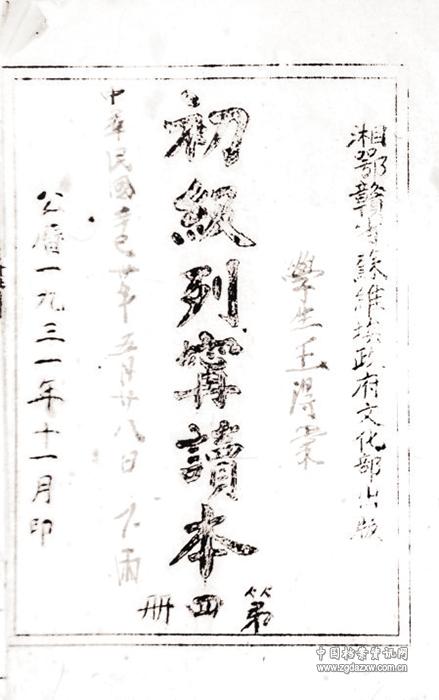 湘鄂贛省蘇維埃政府文化部出版
學生王得
初級列寧讀本
第四册
中華民國辛巳廿年五月廿八日 下雨
公曆一九三一年十一月印
中国档案资讯网
www.zgdazxw.com.cn